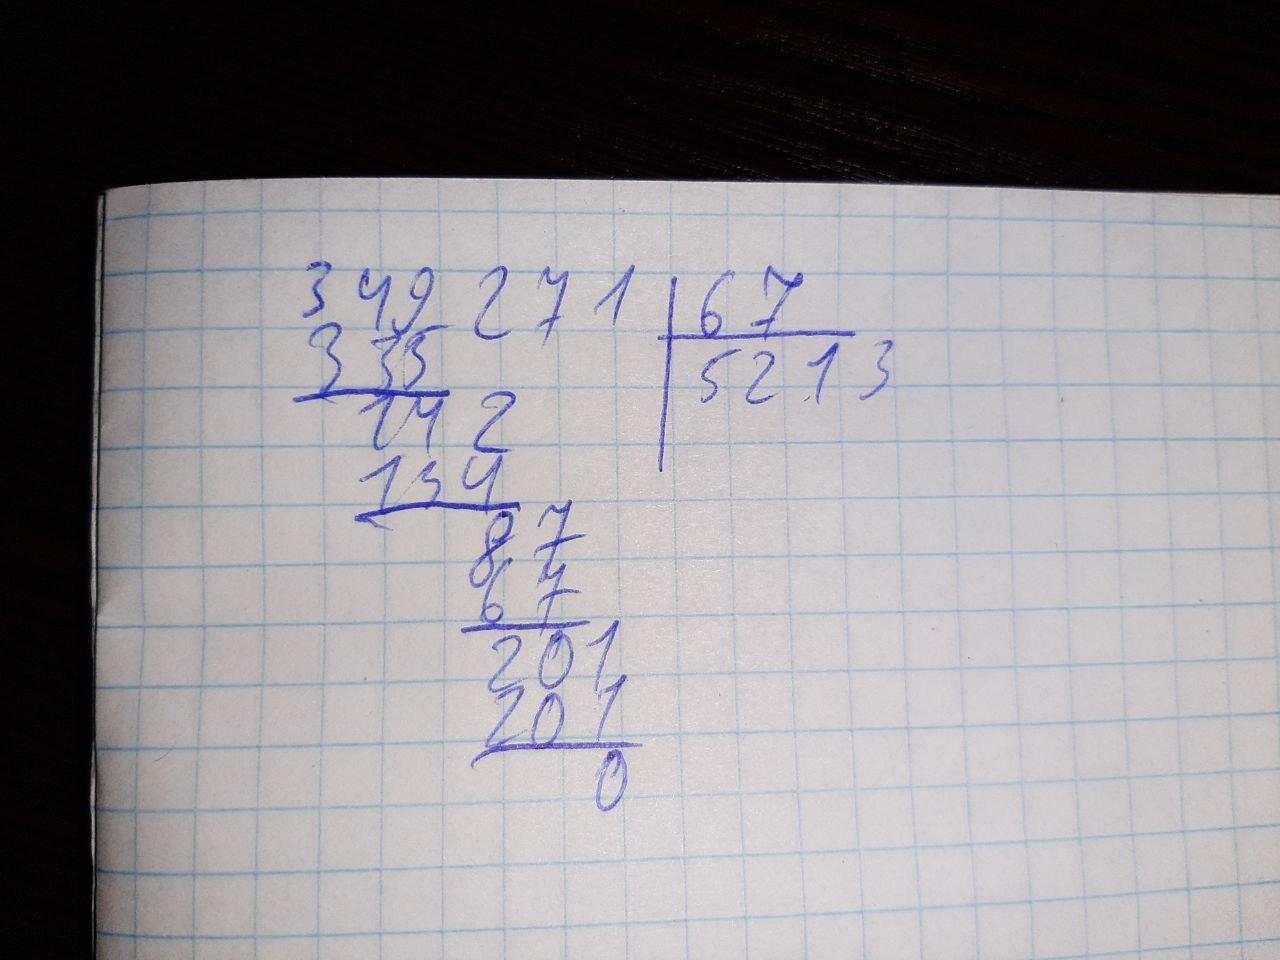 349271 67
335 5213
142
134
87
67
201
201
0